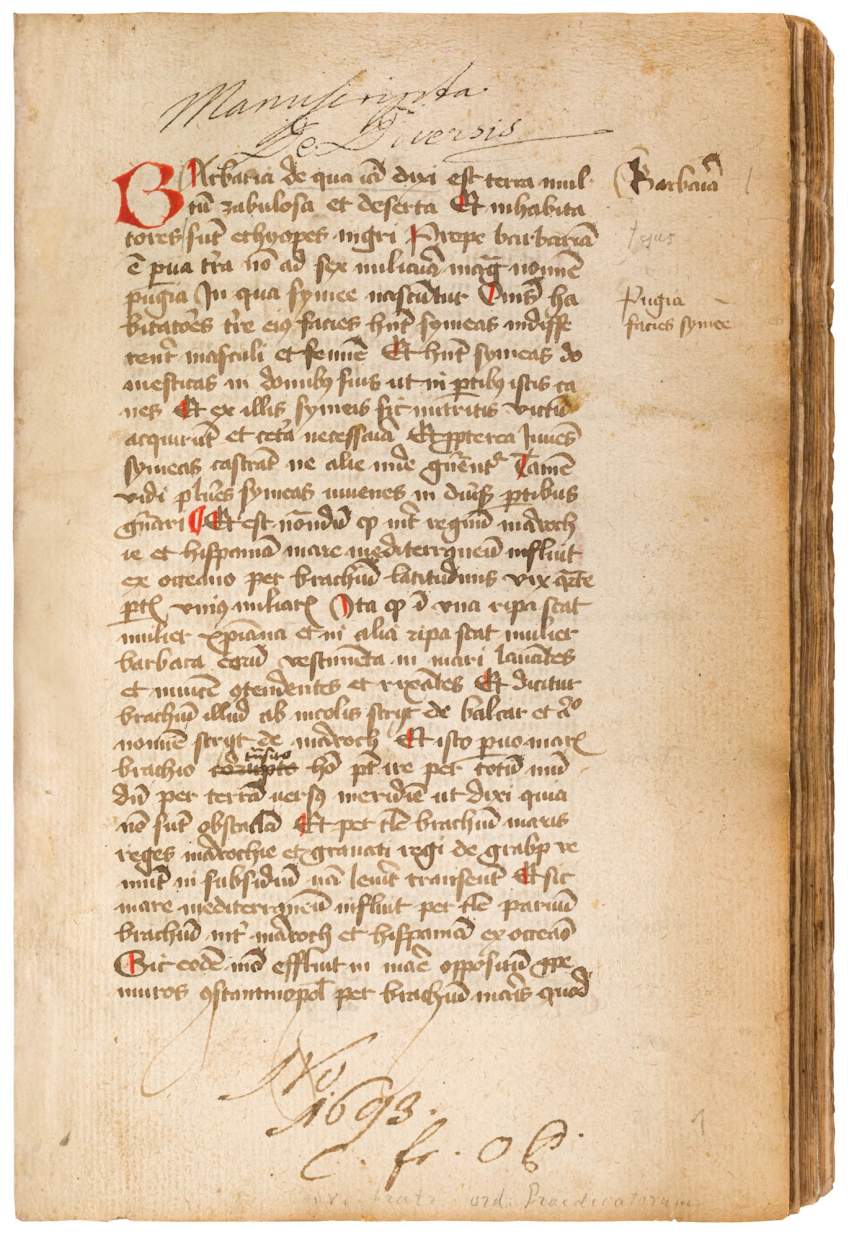 Manuscripta
De Diversis
BArbaria de qua iā dixi est terra mul
tū zabulosa et deserta Et inhabita
tores sūt ethyopes nigri Prope barbariā
ē pua tr̄a nō ad sex miliaria nomē
pugia In qua symee nascūtur Cuius ha
bitatores tr̄e eius facies hn̄t symeas indiffe
rent̄ masculi et femīe Et hn̄t symeas do
mesticas in domibus suis ut in ptibus istis ca
nes Et ex illis symeis sic nutritis victū
acquirūt et cet̄a necessaria Et propterea iuuēs
symeas castrāt ne alie inde gn̄ent Tamē
vidi plures symeas iuuenes in diūsis ptibus
gn̄ari Et est notandū qd int̄ regnū maroch
ie et hispaniā mare mediterraneū influit
ex occeano per brachiū latitudinis vix quarte
ptis vnius miliaris Ita qd ī vna ripa stat
mulier xpiana et in alia ripa stat mulier
barbara earū vestimēta in mari lauātes
et inuicē contendentes et rixātes Et dicitur
brachiū illud ab incolis strict de balcar et alio
nomīe strict de maroch Et isto puo maris
brachio transito hō pt ire per totū mū
dū per terrā versus meridiē ut dixi quia
nō sūt obstacla Et per tale brachiū maris
reges marochie et granati regi de
mūt in subsidiū nā leuit̄ transeunt Et sic
mare mediterraneū influit per tale paruū
brachiū int̄ maroch et hispaniā ex occeāo
Sic eodē mō effluit in mare oppositū prope
muros constantinopol per brachiū maris quod
Barbaria
Pugia
facies symee
No
1693.
C. fr. O
ord. Praedicatorum
1